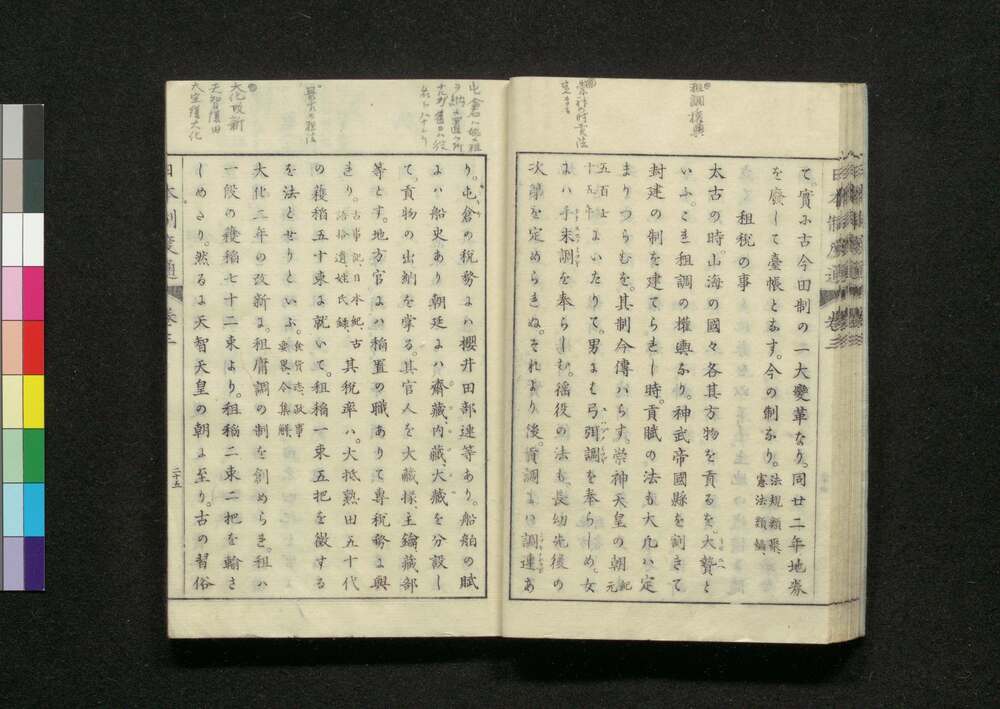 租調権輿
崇神の時貢法
て。實に古今田制の一大變革なり。同廿二年地券
を廢して臺帳となす。今の制なり。法規類聚、
憲法類編、
租税の事
太古の時。山海の國々各其方物を貢るを大贄と
いふ。こき租調の權輿なり。神武帝國縣を訶きて
封建の制を建てらきし時。貢賦の法も大凡は定
まりつらむを。其制今傳はらす。崇神天皇の朝紀
元
五百七
十五年よいたりて。男には弓弭調を奉らしめ。女
よハ手末調を奉らしむ。徭役の法も。長幼先後の
次第を定めらきぬ。それより後。貢調よは調連あ
日本制度通
卷三
大化改新
り。屯倉の税務よハ櫻井田部連等あり。船舶の賦
よハ船史あり朝廷よハ齋藏、内藏、大藏を分設し
て。貢物の出納を掌る。其官人を大藏掾、主鑰藏部
等とす。地方官よハ稲置の職ありて專税務よ與
きり。古事記、日本紀、古
語拾遺、姓氏録、
其税率ハ。大抵熟田五十代
の穫稲五十束よ就いて。租稲一束五把を徴する
を法とせりといふ。食貨志、政事
要畧、令集解、
大化二年の改新よ。租庸調の制を創めらき。租ハ
一段の穫稲七十二束より。租稲二束二把を輸さ
しめたり。然るよ天智天皇の朝よ至り。古の習俗
二十五
日本制度通
卷三